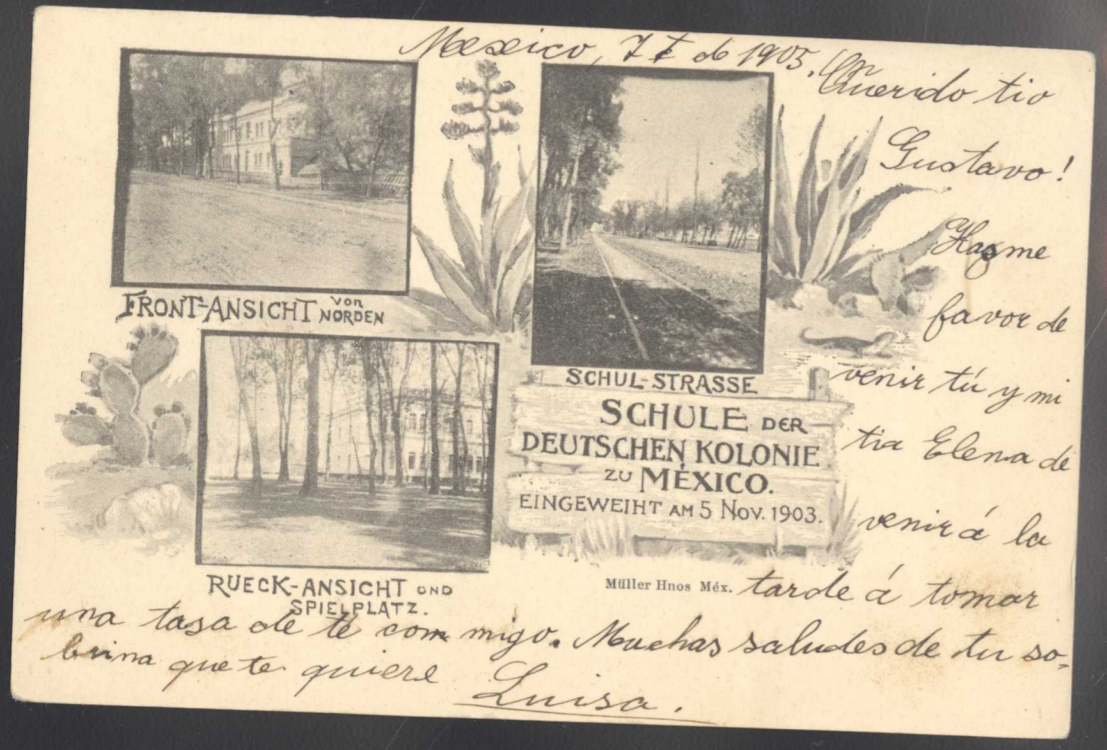 Mexico, 7 de 1905.
Querido tio
Gustavo!
Hasme
favor de
venir tú y mi
tia Elena de
venir á la
tarde á tomar
una tasa de té com migo. Muchas saludes de tu so-
brina que te quiere Luisa.
FRONT-ANSICHT VON NORDEN
SCHUL-STRASSE
SCHULE DER
DEUTSCHEN KOLONIE
ZU MÉXICO.
EINGEWEIHT AM 5 NOV. 1903.
RUECK-ANSICHT OND
SPIELPLATZ.
Müller Hnos Méx.